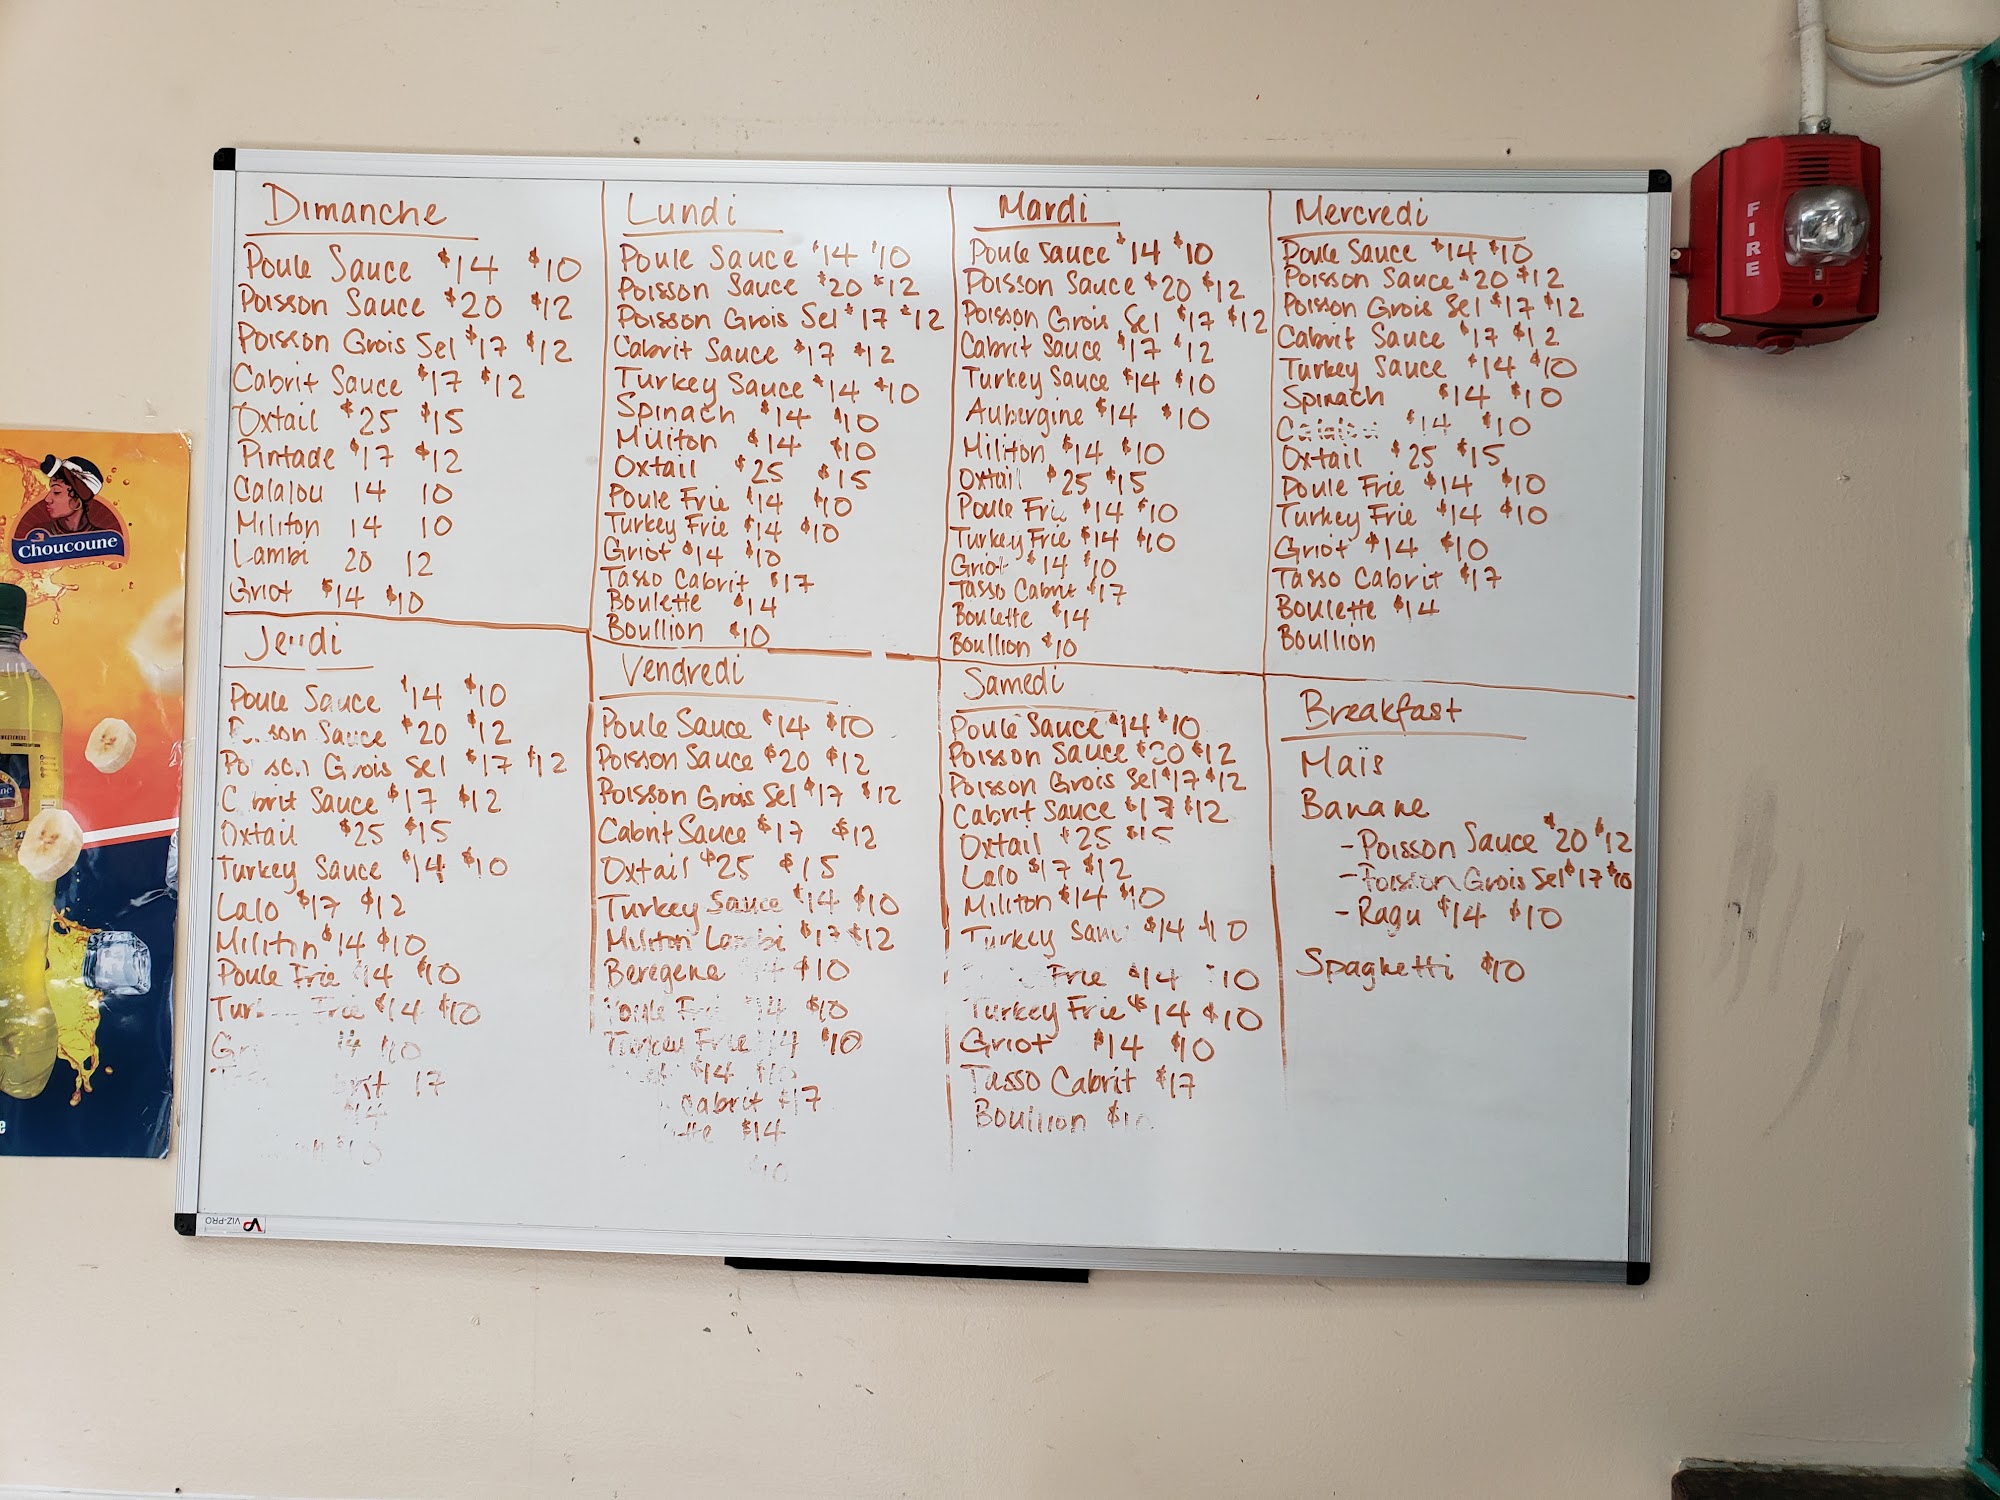 Dimanche
Poule Sauce $14 $10
Poisson Sauce $20 $12
Poisson Grois Sel $17 $12
Cabrit Sauce $17 $12
Oxtail $25 $15
Pintade $17 $12
Calalou 14 10
Militon 14 10
Lambi 20 12
Griot $14 $10
Lundi
Poule Sauce $14 $10
Poisson Sauce $20 $12
Poisson Grois Sel $17 $12
Cabrit Sauce $17 $12
Turkey Sauce $14 $10
Spinach $14 $10
Militon $14 $10
Oxtail $25 $15
Poule Frie $14 $10
Turkey Frie $14 $10
Griot $14 $10
Tasso Cabrit $17
Boulette $14
Boullion $10
Mardi
Poule Sauce $14 $10
Poisson Sauce $20 $12
Poisson Grois Sel $17 $12
Cabrit Sauce $17 $12
Turkey Sauce $14 $10
Aubergine $14 $10
Militon $14 $10
Oxtail $25 $15
Poule Frie $14 $10
Turkey Frie $14 $10
Griot $14 $10
Tasso Cabrit $17
Boulette $14
Boullion $10
Mercredi
Poule Sauce $14 $10
Poisson Sauce $20 $12
Poisson Grois Sel $17 $12
Cabrit Sauce $17 $12
Turkey Sauce $14 $10
Spinach $14 $10
Calalou $14 $10
Oxtail $25 $15
Poule Frie $14 $10
Turkey Frie $14 $10
Griot $14 $10
Tasso Cabrit $17
Boulette $14
Boullion
Jeudi
Poule Sauce $14 $10
Sauce $20 $12
Grois Sel $17 $12
Sauce $17 $12
Oxtail $25 $15
Turkey Sauce $14 $10
Lalo $17 $12
Militon $14 $10
Poule Frie $14 $10
Frie $14 $10
14 $10
17
$14
$10
Vendredi
Poule Sauce $14 $10
Poisson Sauce $20 $12
Poisson Grois Sel $17 $12
Cabrit Sauce $17 $12
Oxtail $25 $15
Turkey Sauce $14 $10
Militon Lambi $17 $12
Beregene 14 $10
Poule Frie 14 $10
Turkey Frie 14 $10
$14 $10
cabrit $17
$14
$10
Samedi
Poule Sauce $14 $10
Poisson Sauce $20 $12
Poisson Grois Sel $17 $12
Cabrit Sauce $17 $12
Oxtail $25 $15
Lalo $17 $12
Militon $14 $10
Turkey $14 $10
Frie $14 $10
Turkey Frie $14 $10
Griot $14 $10
Tasso Cabrit $17
Boullion $10
Breakfast
Maïs
Banane
- Poisson Sauce $20 $12
- Poisson Grois Sel $17 $10
- Ragu $14 $10
Spaghetti $10
Choucoune
FIRE
VIZ-PRO